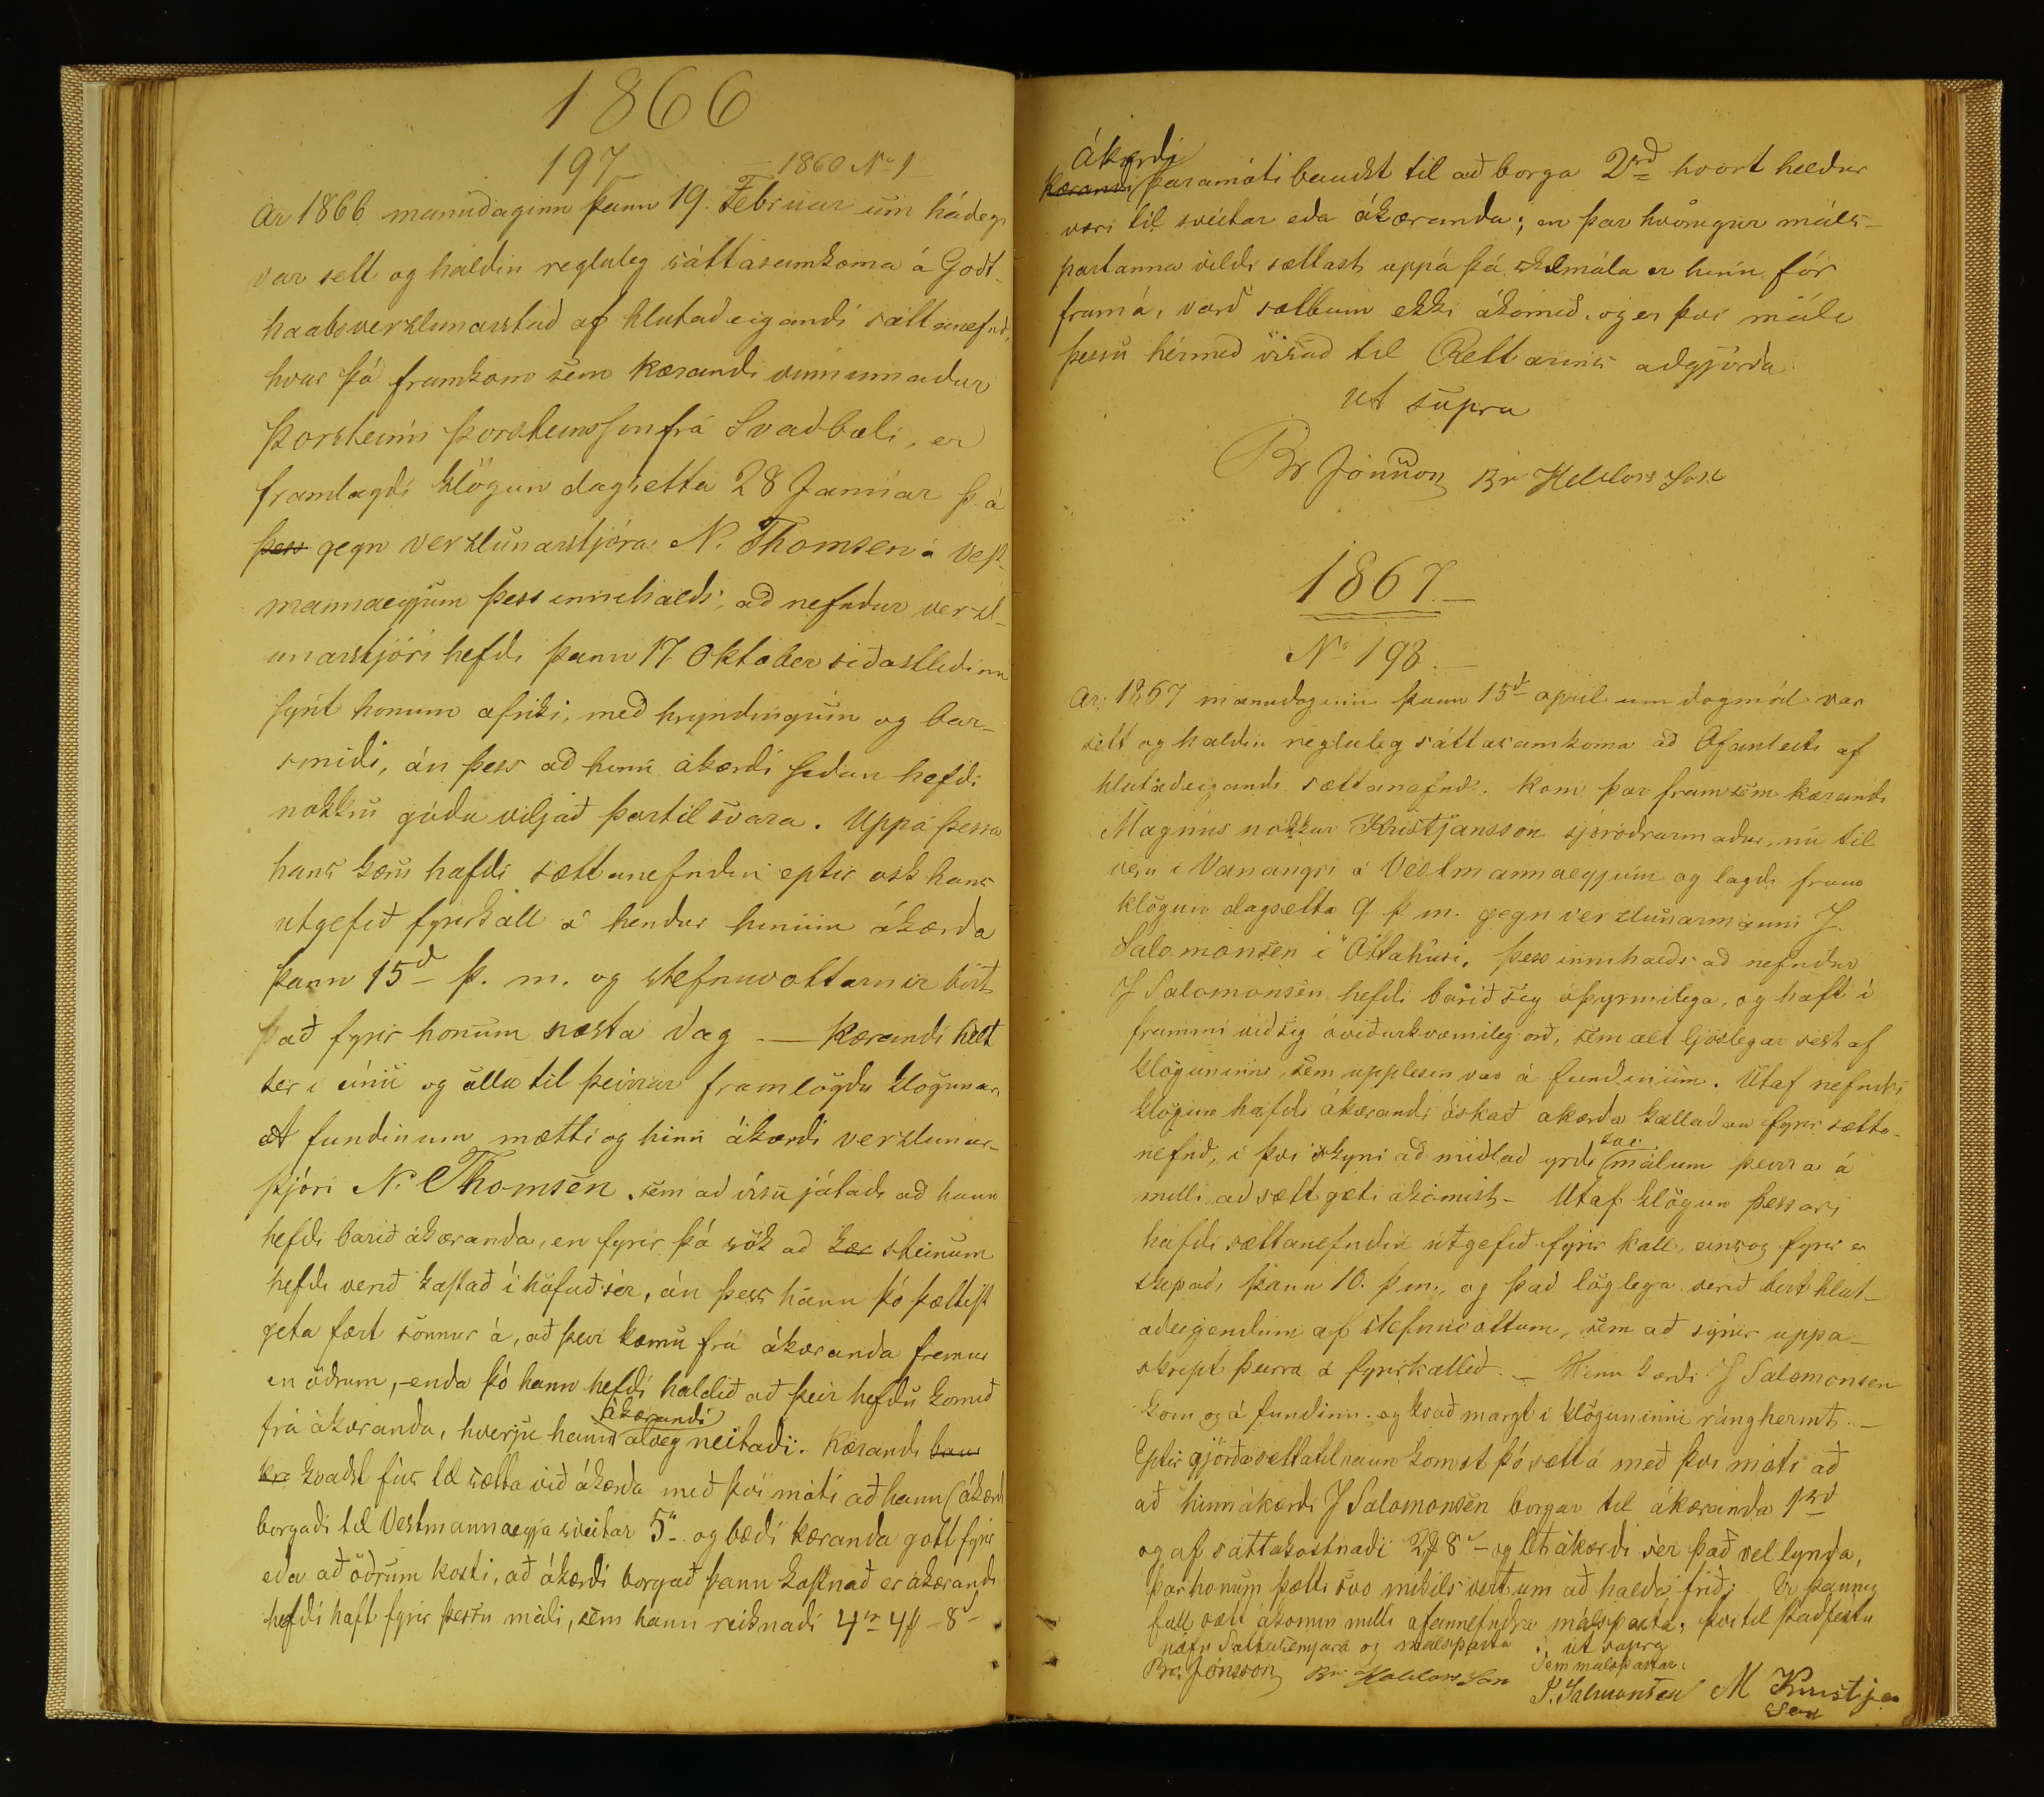 1866
197 — 1860 No 1
Ar 1866 manudaginn þann 19. Februar um hádegi
var sett og haldin regluleg sáttasamkoma á Godt-
haabsverzlunarstad af hlutadeigandi sáttanefnd,
hvar þá framkom sem kærandi vinnumadur
Þorsteinn Þorsteinsson frá Svadbæli, er
framlagdi klögun dagsetta 28 Januar þ. á
þess gegn verzlunarstjóra N. Thomsen á Vest-
mannaeyjum þess innihalds, ad nefndur verzl-
unarstjóri hefdi þann 17 Oktober sídastlidinn
sýnt honum ofriki, med hryndingum og bar-
smidi, án þess ad hinn ákærdi sídan hefdi
nokkru góðu viljað þartil svara. Uppá þessa
hans kæru hafdi sættanefndin eptir osk hans
utgefið fyrirkall á hendur hinum ákærda
þann 15d þ. m. og stefnuvottarnir birt
það fyrir honum næsta dag — Kærandi hélt
ser i einu og ollu til þeirrar framlögdu klogunar.
A fundinum mætti og hinn ákærdi verzlunar-
stjóri N. Thomsen, sem ad visu játadi að hann
hefdi barið ákæranda, en fyrir þá sök ad kær steinum
hefdi verið kastað í höfuð sér, án þess hann þó þættist
geta fært sönnur á, að þeir kæmu frá ákæranda fremur
en öðrum, - enda þó hann hefdi haldið að þeir hefdu komið
frá ákæranda, hverju hann alveg neitadi. Kærandi hans
ákærandi
kvadst fús til sætta við ákærda með því móti að hann (ákærdi
borgaði til Vestmannaeyja sveitar 5 og bædi kæranda gott fyrir
eda að öðrum kosti, að ákærdi borgað þann kostnað er ákærandi
hefdi haft fyrir þessu máli, sem hann reiknadi 4 rd 4 # 8 s
ákærdi
Kærandi þaramóti baudst til að borga 2 rd hvort heldur
væri til sveitar eda ákæranda; en þar hvörugur máls-
partanna vildi sættast uppá þá skilmála er hinn fór
framá, varð sættum ekki ákomið, og er því máli
þessu hérmed vísad til Rettarins adgjörda
ut supra
Br Jónsson Br Halldors Son
1867.—
No 198.—
Ar 1867 manudaginn þann 15d april um dagmál var
sett og haldin regluleg sáttasamkoma að Ofanleiti af
hlutadeigandi sættanefnd. Kom þar fram sem kærandi
Magnús nokkur Kristjánsson sjóródrarmadur, nú til
veru i Vanangri á Vestmannaeyjum og lagdi fram
klögun dagsetta 9 þ. m. gegn verzlunarmanni J.
Salomonsen i Ottahúsi, þess innihalds að nefndur
J Salomonsen hefdi barið sig óþyrmilega, og haft i
frammi vid sig óviðurkvæmileg orð, sem alt ljóslegar sést af
klöguninni, sem upplesin var á fundinum. Útaf nefndri
klögun hafdi ákærandi óskað akærda kalladan fyrir sætta-
nefnd, i því skyni að midlad yrdi málum þeirra á
svo
milli ad sætt gæti ákomist - Utaf klögun þessari
hafdi sættanefndin útgefið fyrir kall, einsog fyrir er
skipad, þann 10. þ. m., og það löglega verið birt hlut-
adeigendum af stefnuvottum, sem að sýnir uppá-
skript þeirra á fyrirkallid. — Hinn kærdi J Salomonsen
kom og á fundinn, og kvað margt i klöguninni ránghermt. —
Eptir gjörða sættatilraun komst þó sætt á með því móti að
að hinn ákærdi J Salomonsen borgar til ákæranda 1 rd
og af sáttakostnadi 2 # 8 s - og lét ákærdi sér það vel lynda,
þar honum þætti svo mikils vert um að halda frið; Er þannig
full sætt ákomin milli ofannefndra málsparta, því til staðfestu
nöfn Sáttasemjara og málsparta. ut supra
Sem málspartar:
Br. Jónsson Br Halldors Son J. Salmonsen M Kristjan
Son